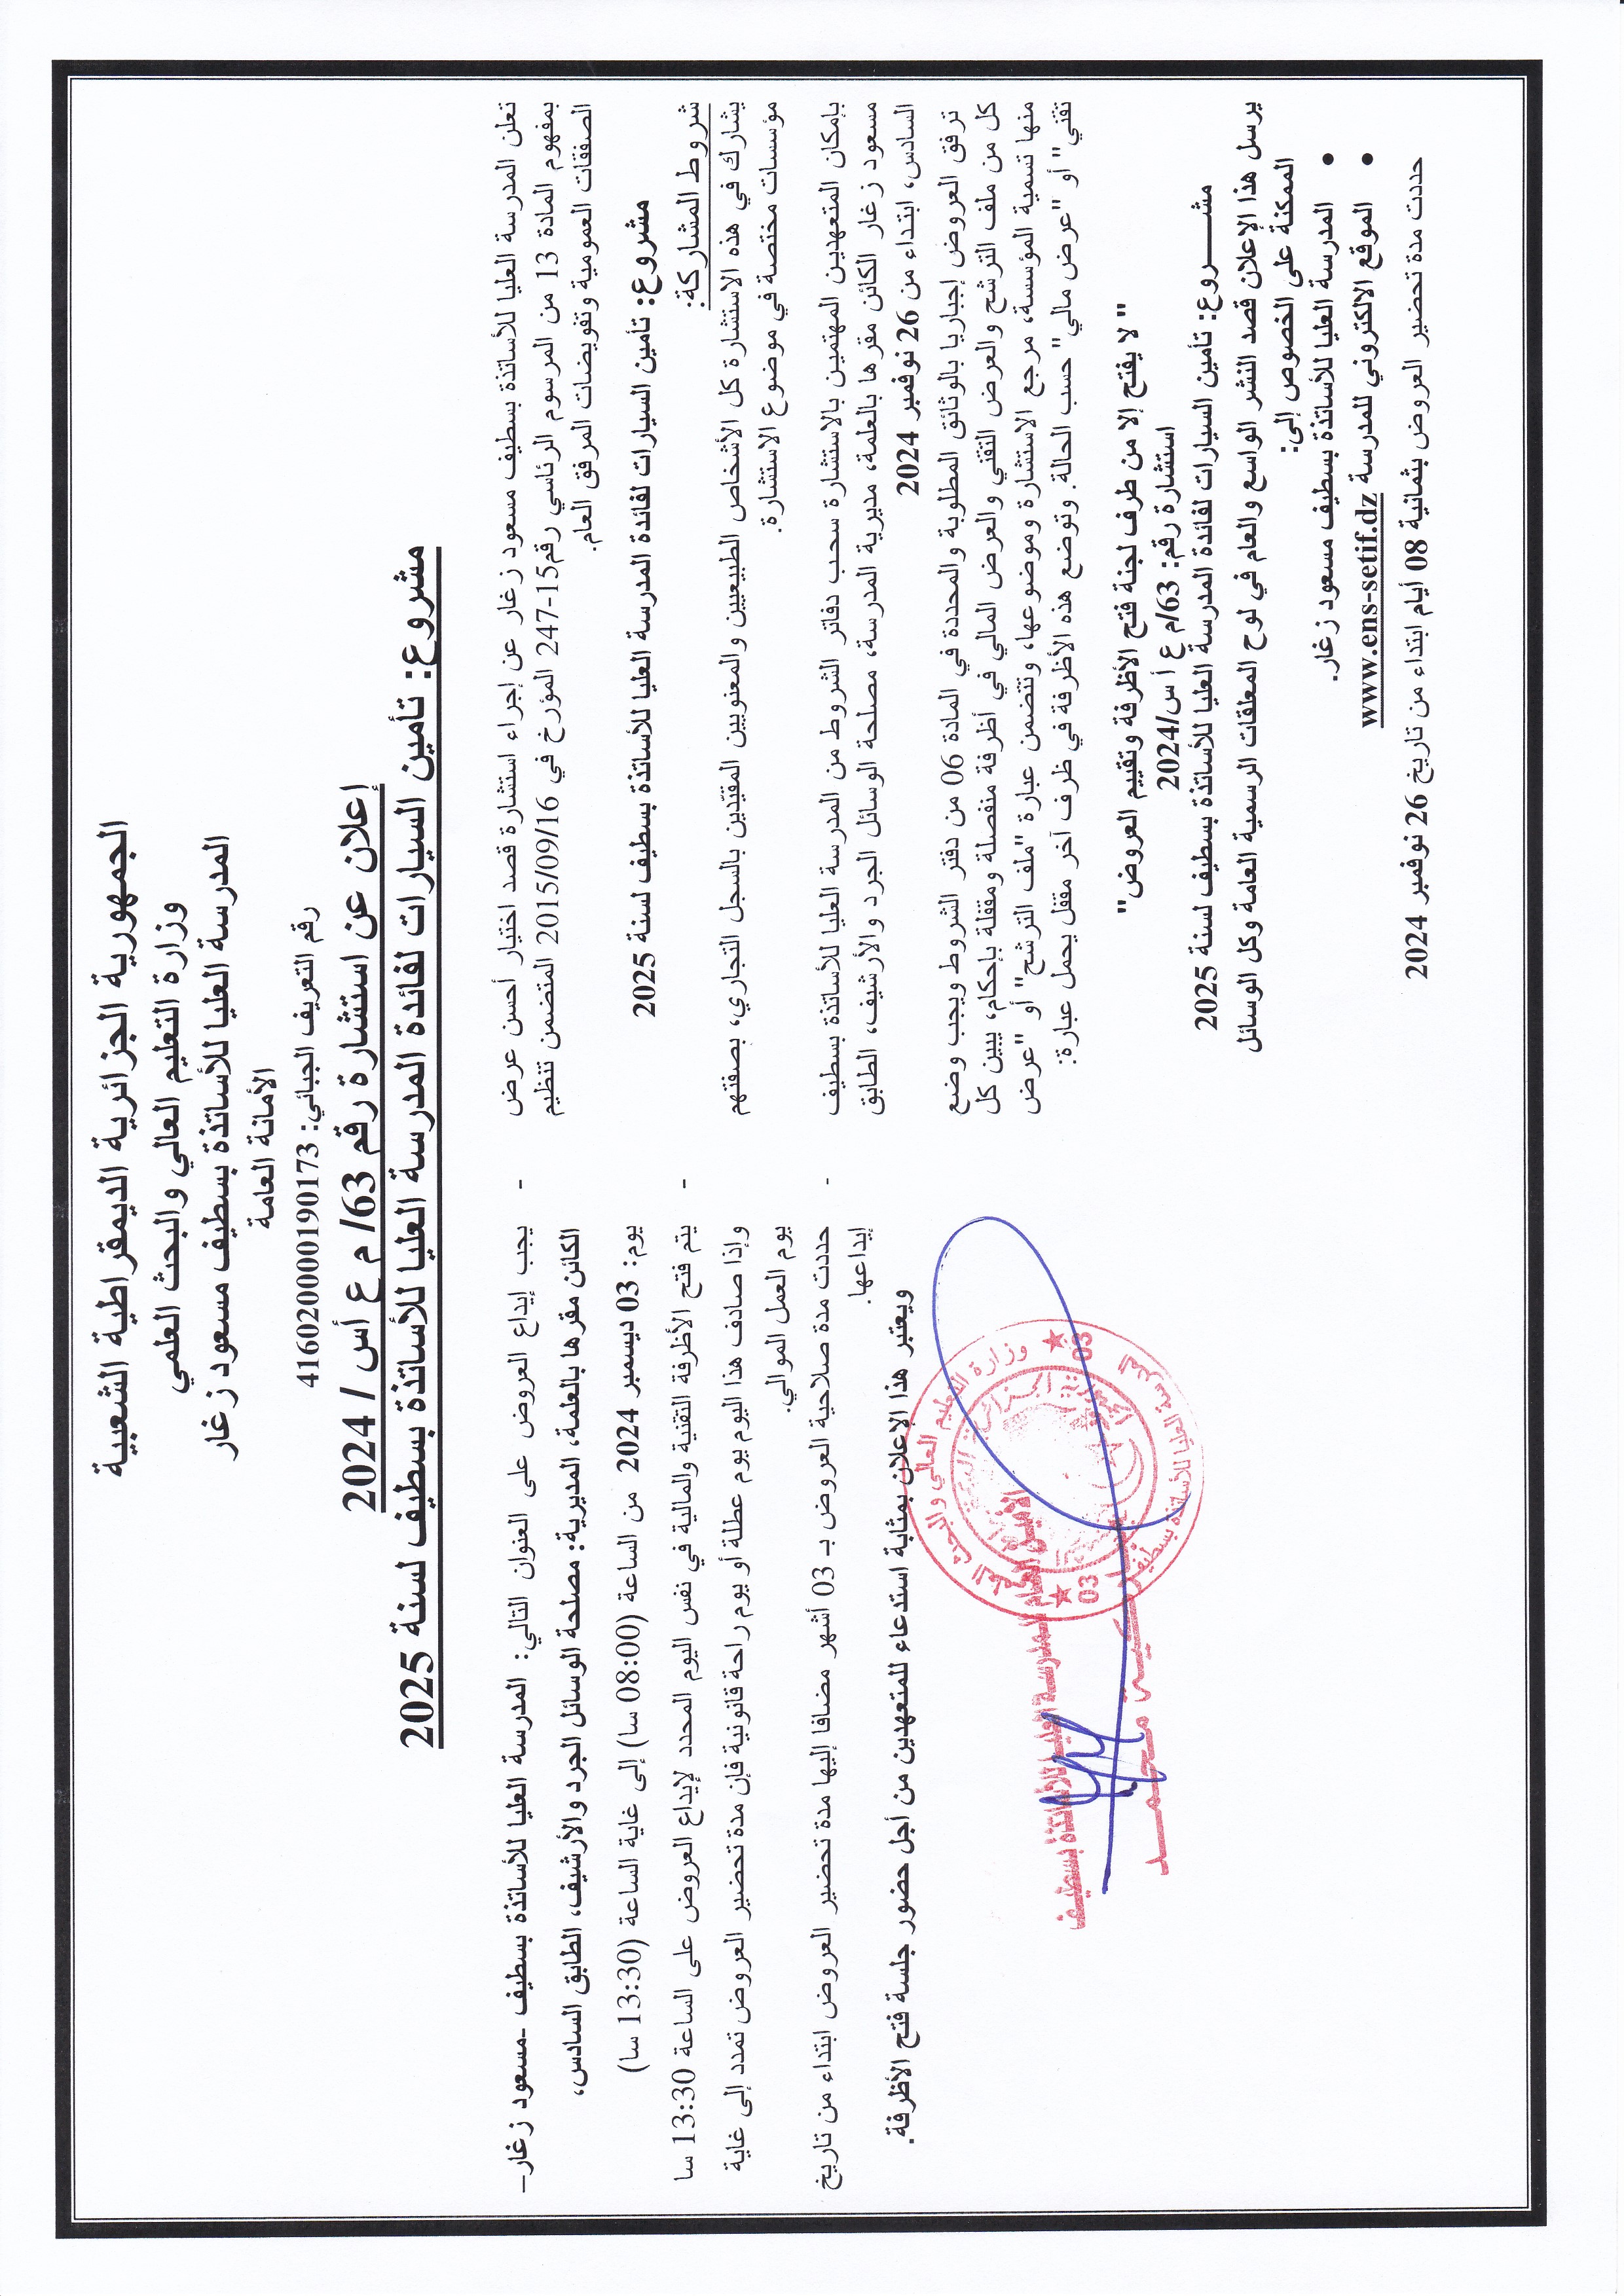 الجمهورية الجزائرية الديمقراطية الشعبية
وزارة التعليم العالي والبحث العلمي
المدرسة العليا للأساتذة بسطيف مسعود زغار
الأمانة العامة
رقم التعريف الجبائي: 416020000190173
إعلان عن استشارة رقم 63/ م ع أس / 2024
مشروع: تأمين السيارات لفائدة المدرسة العليا للأساتذة بسطيف لسنة 2025
تعلن المدرسة العليا للأساتذة بسطيف مسعود زغار عن إجراء استشارة قصد اختيار أحسن عرض
بمفهوم المادة 13 من المرسوم الرئاسي رقم15-247 المؤرخ في 2015/09/16 المتضمن تنظيم
الصفقات العمومية وتفويضات المرفق العام.
مشروع: تأمين السيارات لفائدة المدرسة العليا للأساتذة بسطيف لسنة 2025
شروط المشاركة:
يشارك في هذه الاستشارة كل الأشخاص الطبيعيين والمعنويين المقيّدين بالسجل التجاري، بصفتهم
مؤسسات مختصة في موضوع الاستشارة.
بإمكان المتعهدين المهتمين بالاستشارة سحب دفاتر الشروط من المدرسة العليا للأساتذة بسطيف
مسعود زغار الكائن مقرها بالعلمة، مديرية المدرسة، مصلحة الوسائل الجرد والأرشيف، الطابق
السادس، ابتداء من 26 نوفمبر 2024
ترفق العروض إجباريا بالوثائق المطلوبة والمحددة في المادة 06 من دفتر الشروط ويجب وضع
كل من ملف الترشح والعرض التقني والعرض المالي في أظرفة منفصلة ومقفلة بإحكام، يبين كل
منها تسمية المؤسسة، مرجع الاستشارة وموضوعها، وتتضمن عبارة "ملف الترشح" أو "عرض
تقني" أو "عرض مالي" حسب الحالة. وتوضع هذه الأظرفة في ظرف آخر مقفل يحمل عبارة:
" لا يفتح إلا من طرف لجنة فتح الأظرفة وتقييم العروض"
استشارة رقم: 63/م ع أ س/2024
مشـــــروع: تأمين السيارات لفائدة المدرسة العليا للأساتذة بسطيف لسنة 2025
يرسل هذا الإعلان قصد النشر الواسع والعام في لوح المعلقات الرسمية العامة وكل الوسائل
الممكنة على الخصوص إلى:
• المدرسة العليا للأساتذة بسطيف مسعود زغار.
• الموقع الالكتروني للمدرسة www.ens-setif.dz
حددت مدة تحضير العروض بثمانية 08 أيام ابتداء من تاريخ 26 نوفمبر 2024
- يجب إيداع العروض على العنوان التالي: المدرسة العليا للأساتذة بسطيف -مسعود زغار–
الكائن مقرها بالعلمة، المديرية: مصلحة الوسائل الجرد والأرشيف، الطابق السادس،
يوم: 03 ديسمبر 2024 من الساعة (08:00 سا) إلى غاية الساعة (13:30 سا)
- يتم فتح الأظرفة التقنية والمالية في نفس اليوم المحدد لإيداع العروض على الساعة 13:30 سا
وإذا صادف هذا اليوم يوم عطلة أو يوم راحة قانونية فإن مدة تحضير العروض تمدد إلى غاية
يوم العمل الموالي.
- حددت مدة صلاحية العروض بـ 03 أشهر مضافا إليها مدة تحضير العروض ابتداء من تاريخ
إيداعها.
ويعتبر هذا الإعلان بمثابة استدعاء للمتعهدين من أجل حضور جلسة فتح الأظرفة.
وزارة التعليم العالي والبحث العلمي
المدرسة العليا للأساتذة بسطيف
03
03
الأمين العام للمدرسة العليا للأساتذة بسطيف
محمد